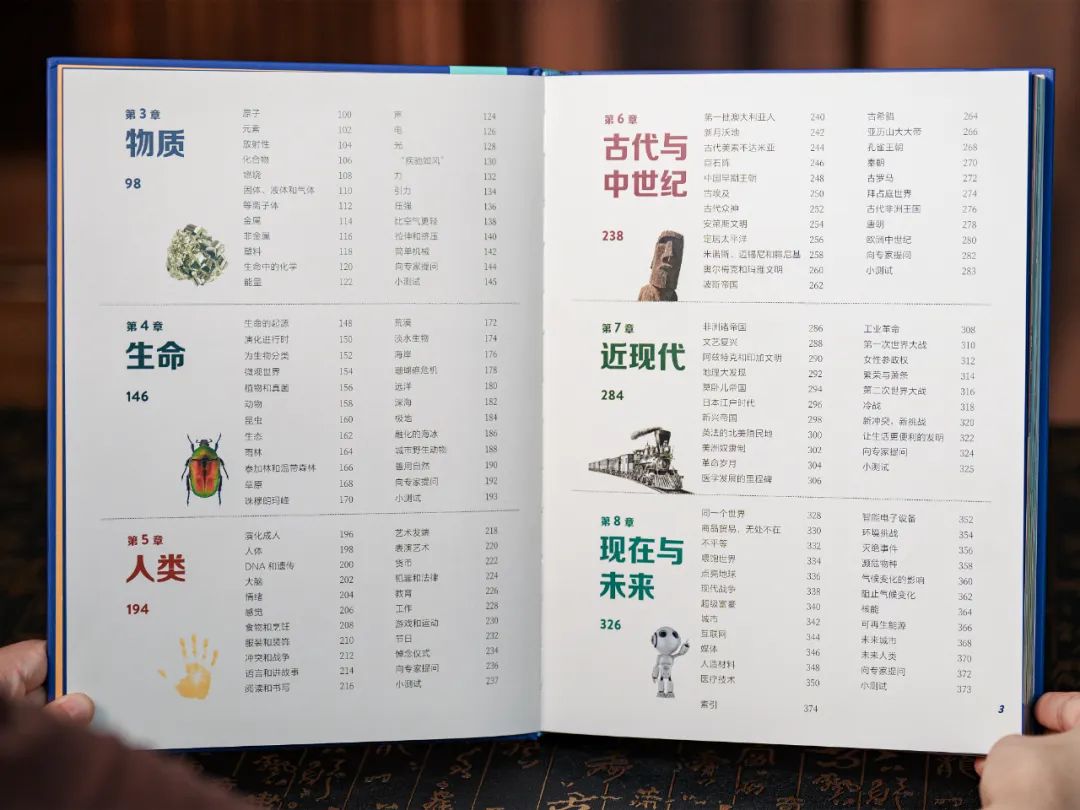 第 3 章
物质
98
原子 100
元素 102
放射性 104
化合物 106
燃烧 108
固体、液体和气体 110
等离子体 112
金属 114
非金属 116
塑料 118
生命中的化学 120
能量 122
声 124
电 126
光 128
“疾驰如风” 130
力 132
引力 134
压强 136
比空气更轻 138
拉伸和挤压 140
简单机械 142
向专家提问 144
小测试 145
第 4 章
生命
146
生命的起源 148
演化进行时 150
为生物分类 152
微观世界 154
植物和真菌 156
动物 158
昆虫 160
生态 162
雨林 164
泰加林和温带森林 166
草原 168
珠穆朗玛峰 170
荒漠 172
淡水生物 174
海岸 176
珊瑚礁危机 178
远洋 180
深海 182
极地 184
融化的海冰 186
城市野生动物 188
善用自然 190
向专家提问 192
小测试 193
第 5 章
人类
194
演化成人 196
人体 198
DNA 和遗传 200
大脑 202
情绪 204
感觉 206
食物和烹饪 208
服装和装饰 210
冲突和战争 212
语言和讲故事 214
阅读和书写 216
艺术发端 218
表演艺术 220
货币 222
犯罪和法律 224
教育 226
工作 228
游戏和运动 230
节日 232
悼念仪式 234
向专家提问 236
小测试 237
第 6 章
古代与
中世纪
238
第一批澳大利亚人 240
新月沃地 242
古代美索不达米亚 244
巨石阵 246
中国早期王朝 248
古埃及 250
古代众神 252
安第斯文明 254
定居太平洋 256
米诺斯、迈锡尼和腓尼基 258
奥尔梅克和玛雅文明 260
波斯帝国 262
古希腊 264
亚历山大大帝 266
孔雀王朝 268
秦朝 270
古罗马 272
拜占庭世界 274
古代非洲王国 276
唐朝 278
欧洲中世纪 280
向专家提问 282
小测试 283
第 7 章
近现代
284
非洲诸帝国 286
文艺复兴 288
阿兹特克和印加文明 290
地理大发现 292
莫卧儿帝国 294
日本江户时代 296
新兴帝国 298
英法的北美殖民地 300
美洲奴隶制 302
革命岁月 304
医学发展的里程碑 306
工业革命 308
第一次世界大战 310
女性参政权 312
繁荣与萧条 314
第二次世界大战 316
冷战 318
新冲突，新挑战 320
让生活更便利的发明 322
向专家提问 324
小测试 325
第 8 章
现在与
未来
326
同一个世界 328
商品贸易，无处不在 330
不平等 332
喂饱世界 334
点亮地球 336
现代战争 338
超级富豪 340
城市 342
互联网 344
媒体 346
人造材料 348
医疗技术 350
智能电子设备 352
环境挑战 354
灭绝事件 356
濒危物种 358
气候变化的影响 360
阻止气候变化 362
核能 364
可再生能源 366
未来城市 368
未来人类 370
向专家提问 372
小测试 373
索引 374
3